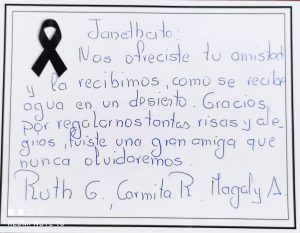 Janethcita:
Nos ofreciste tu amistad
y la recibimos, como se recibe
agua en un desierto. Gracias,
por regalarnos tantas risas y ale_
grias, fuiste una gran amiga que
nunca olvidaremos.
Ruth G., Carmita R. Magaly A.